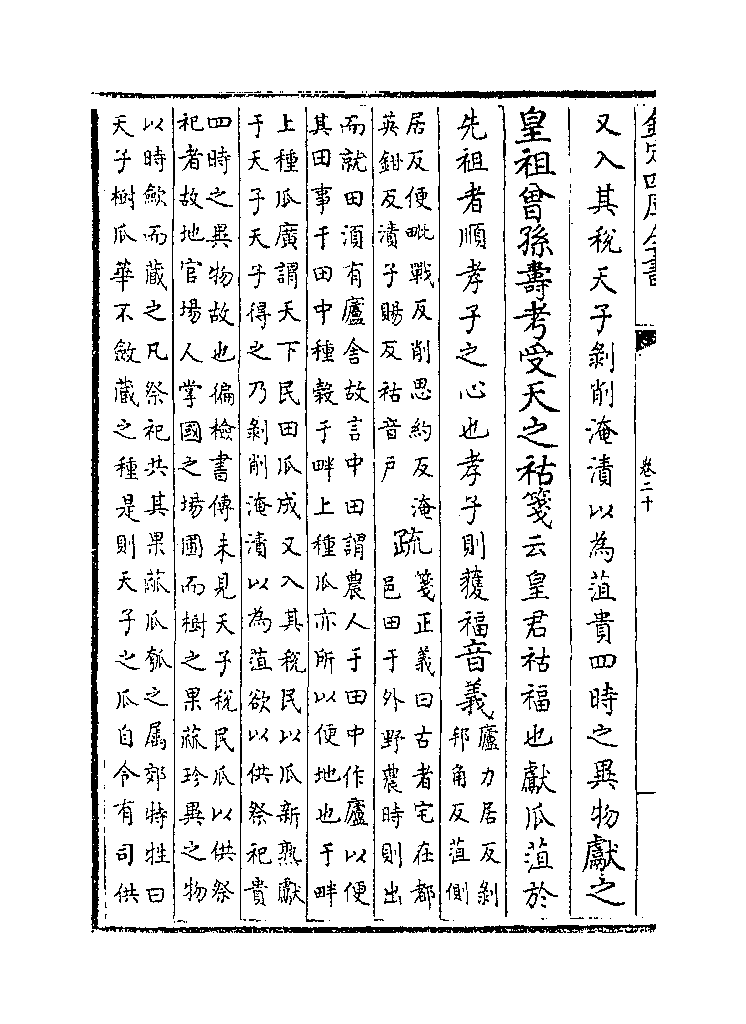 欽定四庫全書
卷二十
又入其稅天子剝削淹漬以為菹貴四時之異物獻之
皇祖曾孫壽考受天之祜箋云皇君祜福也獻瓜菹於
先祖者順孝子之心也孝子則獲福音義廬力居反剝
邦角反菹側
居反便毗戰反削思約反淹
英鉗反漬子賜反祜音戶
疏箋正義曰古者宅在都
邑田于外野農時則出
而就田湏有廬舍故言中田謂農人于田中作廬以便
其田事于田中種穀于畔上種瓜亦所以便地也于畔
上種瓜廣謂天下民田瓜成又入其稅民以瓜新熟獻
于天子天子得之乃剝削淹漬以為菹欲以供祭祀貴
四時之異物故也偏檢書傳未見天子稅民瓜以供祭
祀者故地官場人掌國之場圃而樹之果蓏珍異之物
以時斂而藏之凡祭祀共其果蓏瓜瓠之属郊特牲曰
天子樹瓜華不斂藏之種是則天子之瓜自令有司供